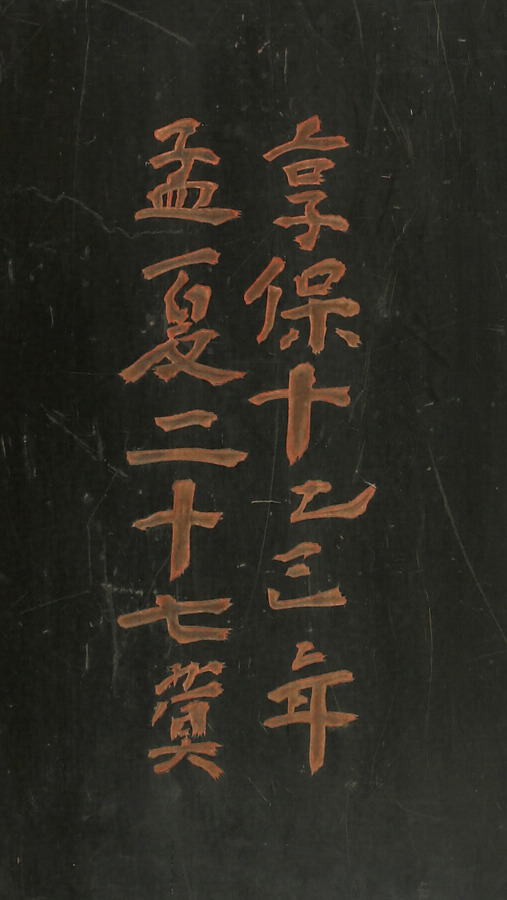 享保十乙巳年
孟夏二十七蓂